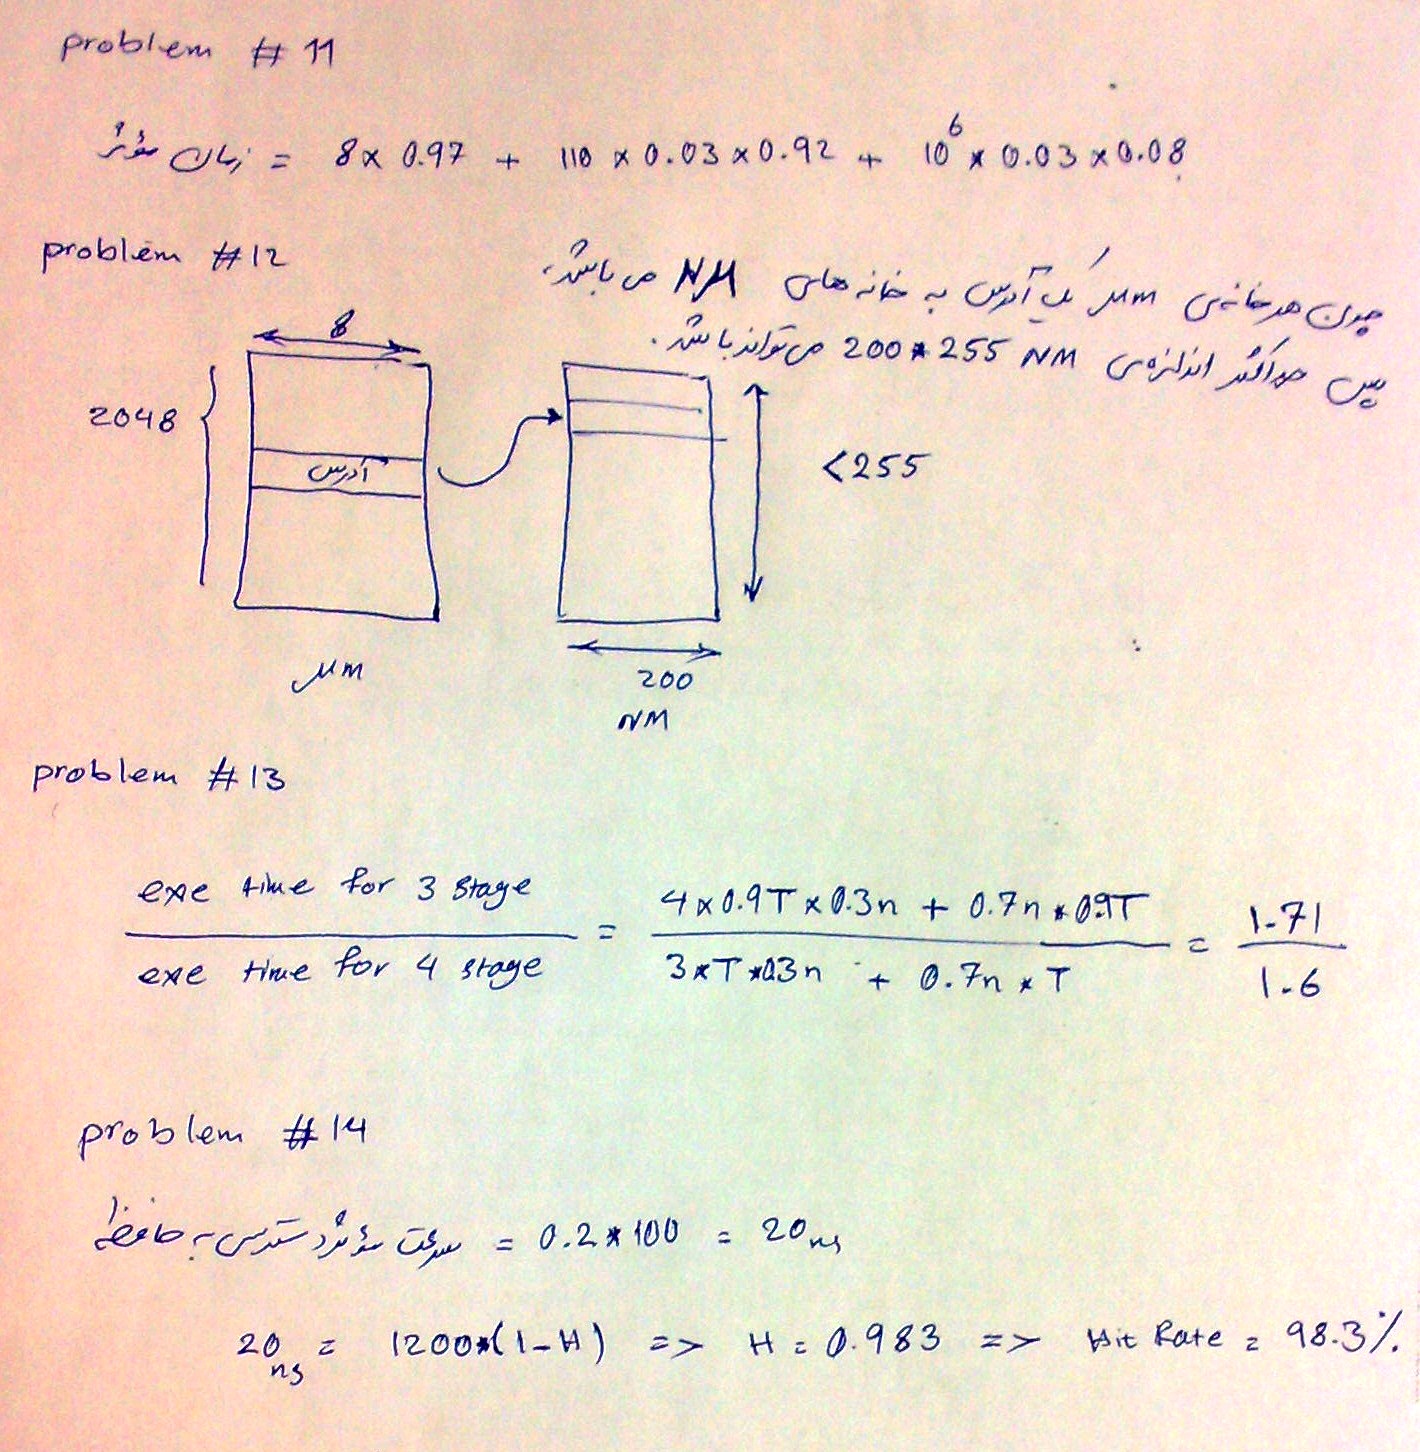 problem # 11
زمان مؤثر = 8 x 0.97 + 110 x 0.03 x 0.92 + 10^6 x 0.03 x 0.08
problem #12
چون هر خانه‌ی μm یک آدرس به خانه های NM می باشد،
پس حداکثر اندازه‌ی NM 200 * 255 می تواند باشد.
8
2048
آدرس
<255
μm
200
NM
problem #13
exe time for 3 stage / exe time for 4 stage = (4 x 0.9T x 0.3n + 0.7n * 0.9T) / (3 * T * 0.3n + 0.7n * T) = 1.71 / 1.6
problem #14
سرعت مؤثر دسترسی به حافظه = 0.2 * 100 = 20 ns
20 ns = 1200*(1-H) => H = 0.983 => Hit Rate = 98.3%